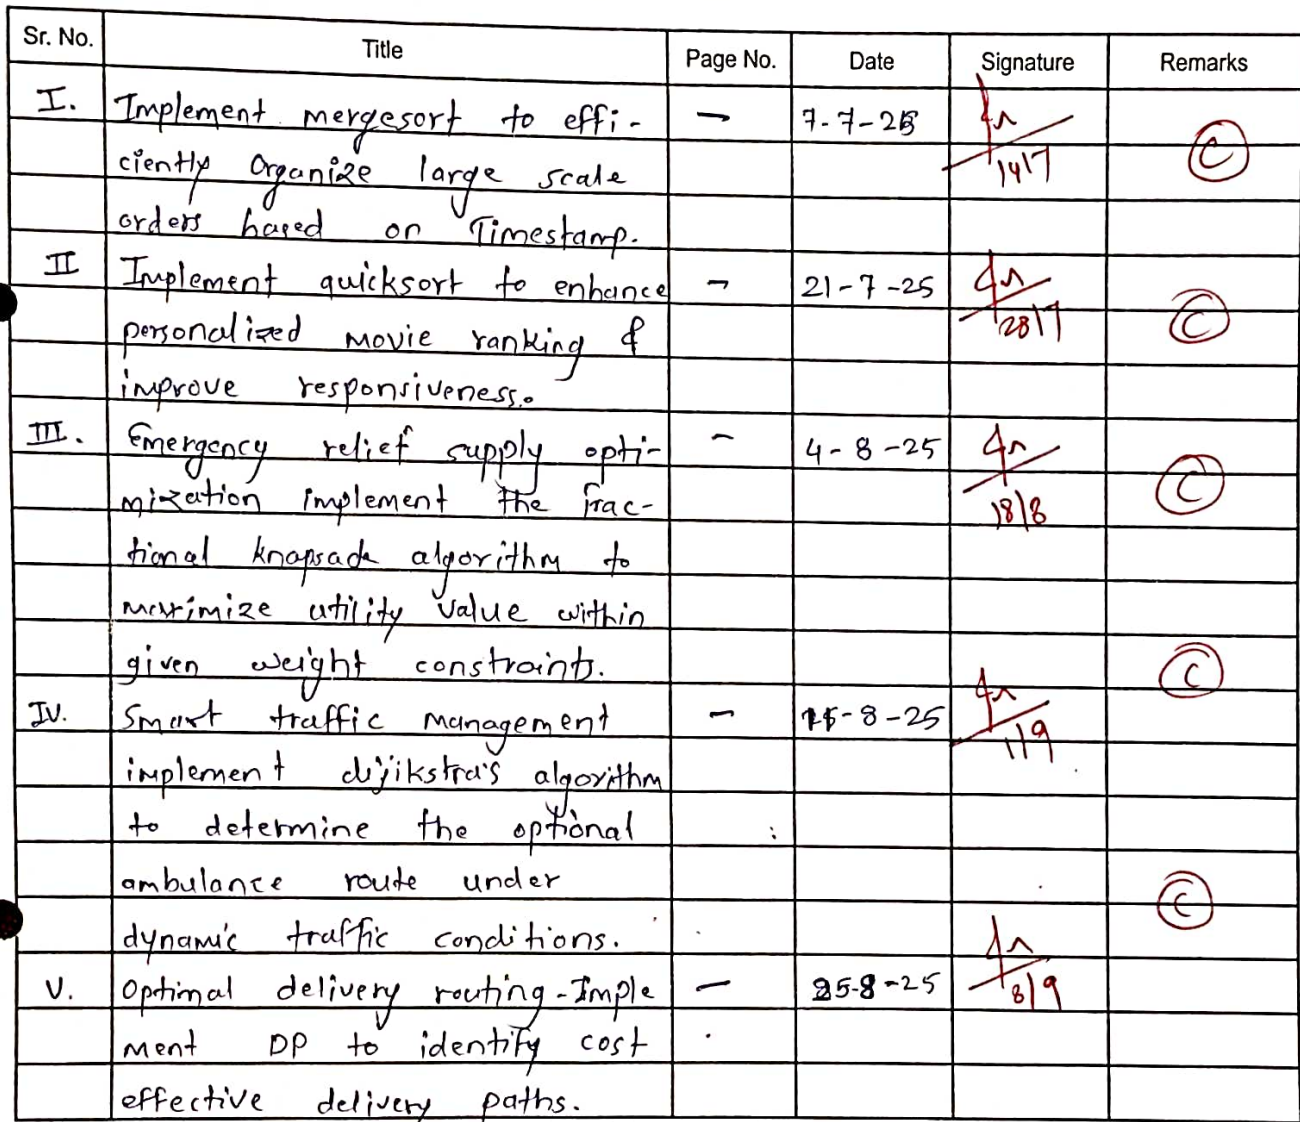 Sr. No. Title Page No. Date Signature Remarks
I. Implement mergesort to effi- – 7-7-25
ciently Organize large scale 14/7 C
orders based on Timestamp.
II Implement quicksort to enhance – 21-7-25
personalized movie ranking & 28/7 C
improve responsiveness.
III. Emergency relief supply opti- – 4-8-25
mization implement the frac- 18/8 C
tional knapsack algorithm to
maximize utility value within
given weight constraints. C
IV. Smart traffic management – -8-25
implement dijikstra's algorithm 1/9
to determine the optional
ambulance route under C
dynamic traffic conditions.
V. Optimal delivery routing - Imple – 25-8-25 8/9
ment DP to identify cost
effective delivery paths.